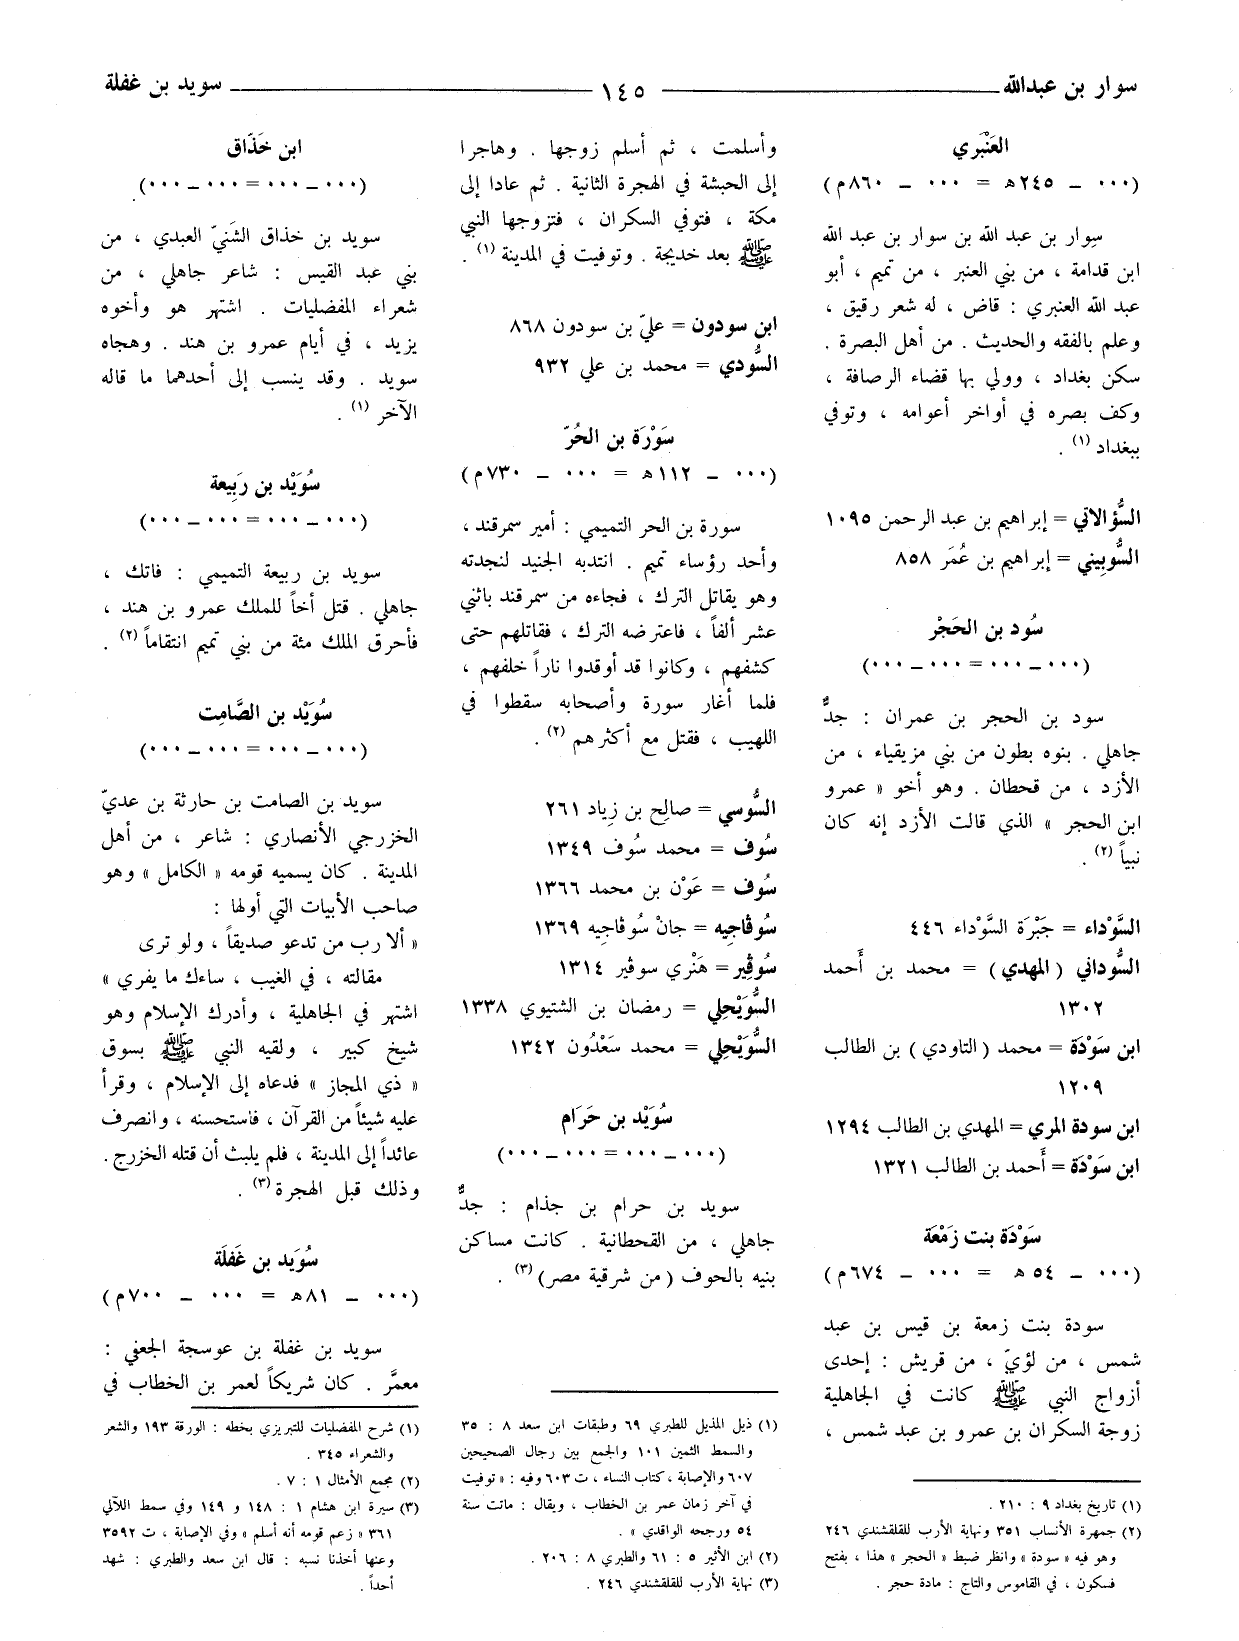 سوار بن عبدالله ١٤٥ سويد بن غفلة
العَنْبَري
(٠٠٠ ـ ٢٤٥ه = ٠٠٠ ـ ٨٦٠م)
سِوار بن عبد الله بن سوار بن عبد الله
ابن قدامة ، من بني العنبر ، من تميم ، أبو
عبد الله العنبري : قاض ، له شعر رقيق ،
وعلم بالفقه والحديث . من أهل البصرة .
سكن بغداد ، وولي بها قضاء الرصافة ،
وكف بصره في أواخر أعوامه ، وتوفي
ببغداد (١) .
السُّؤالاتي = إبراهيم بن عبد الرحمن ١٠٩٥
السُّوبِيني = إبراهيم بن عُمَر ٨٥٨
سُود بن الحَجْر
(٠٠٠ ـ ٠٠٠ = ٠٠٠ ـ ٠٠٠)
سود بن الحجر بن عمران : جدٌّ
جاهلي . بنوه بطون من بني مزيقياء ، من
الأزد ، من قحطان . وهو أخو « عمرو
ابن الحجر » الذي قالت الأزد إنه كان
نبياً (٢) .
السَّوْداء = جَبْرَة السَّوْداء ٤٤٦
السُّوداني (المهدي) = محمد بن أَحمد
١٣٠٢
ابن سَوْدَة = محمد (التاودي) بن الطالب
١٢٠٩
ابن سودة المري = المهدي بن الطالب ١٢٩٤
ابن سَوْدَة = أَحمد بن الطالب ١٣٢١
سَوْدَة بنت زمْعَة
(٠٠٠ ـ ٥٤ ه = ٠٠٠ ـ ٦٧٤م)
سودة بنت زمعة بن قيس بن عبد
شمس ، من لؤيّ ، من قريش : إحدى
أزواج النبي ﷺ كانت في الجاهلية
زوجة السكران بن عمرو بن عبد شمس ،
(١) تاريخ بغداد ٩ : ٢١٠ .
(٢) جمهرة الأنساب ٣٥١ ونهاية الأرب للقلقشندي ٢٤٦
وهو فيه « سودة » وانظر ضبط « الحجر » هذا ، بفتح
فسكون ، في القاموس والتاج : مادة حجر .
وأسلمت ، ثم أسلم زوجها . وهاجرا
إلى الحبشة في الهجرة الثانية . ثم عادا إلى
مكة ، فتوفي السكران ، فتزوجها النبي
ﷺ بعد خديجة . وتوفيت في المدينة (١) .
ابن سودون = عليّ بن سودون ٨٦٨
السُّودي = محمد بن علي ٩٣٢
سَوْرَة بن الحُرّ
(٠٠٠ ـ ١١٢ه = ٠٠٠ ـ ٧٣٠م)
سورة بن الحر التميمي : أمير سمرقند ،
وأحد رؤساء تميم . انتدبه الجنيد لنجدته
وهو يقاتل الترك ، فجاءه من سمرقند باثني
عشر ألفاً ، فاعترضه الترك ، فقاتلهم حتى
كشفهم ، وكانوا قد أوقدوا ناراً خلفهم ،
فلما أغار سورة وأصحابه سقطوا في
اللهيب ، فقتل مع أكثرهم (٢) .
السُّوسي = صالح بن زِياد ٢٦١
سُوف = محمد سُوف ١٣٤٩
سُوف = عَوْن بن محمد ١٣٦٦
سُوڤاجيه = جانْ سُوڤاجيه ١٣٦٩
سُوڤير = هَنْري سوڤير ١٣١٤
السُّوَيْحلي = رمضان بن الشتيوي ١٣٣٨
السُّوَيْحلي = محمد سَعْدُون ١٣٤٢
سُوَيْد بن حَرَام
(٠٠٠ ـ ٠٠٠ = ٠٠٠ ـ ٠٠٠)
سويد بن حرام بن جذام : جدٌّ
جاهلي ، من القحطانية . كانت مساكن
بنيه بالحوف (من شرقية مصر) (٣) .
(١) ذيل المذيل للطبري ٦٩ وطبقات ابن سعد ٨ : ٣٥
والسمط الثمين ١٠١ والجمع بين رجال الصحيحين
٦٠٧ والإصابة ، كتاب النساء ، ت ٦٠٣ وفيه : « توفيت
في آخر زمان عمر بن الخطاب ، ويقال : ماتت سنة
٥٤ ورجحه الواقدي » .
(٢) ابن الأثير ٥ : ٦١ والطبري ٨ : ٢٠٦ .
(٣) نهاية الأرب للقلقشندي ٢٤٦ .
ابن خَذّاق
(٠٠٠ ـ ٠٠٠ = ٠٠٠ ـ ٠٠٠)
سويد بن خذاق الشَنيّ العبدي ، من
بني عبد القيس : شاعر جاهلي ، من
شعراء المفضليات . اشتهر هو وأخوه
يزيد ، في أيام عمرو بن هند . وهجاه
سويد . وقد ينسب إلى أحدهما ما قاله
الآخر (١) .
سُوَيْد بن رَبِيعة
(٠٠٠ ـ ٠٠٠ = ٠٠٠ ـ ٠٠٠)
سويد بن ربيعة التميمي : فاتك ،
جاهلي . قتل أخاً للملك عمرو بن هند ،
فأحرق الملك مئة من بني تميم انتقاماً (٢) .
سُوَيْد بن الصَّامِت
(٠٠٠ ـ ٠٠٠ = ٠٠٠ ـ ٠٠٠)
سويد بن الصامت بن حارثة بن عديّ
الخزرجي الأنصاري : شاعر ، من أهل
المدينة . كان يسميه قومه « الكامل » وهو
صاحب الأبيات التي أولها :
« ألا رب من تدعو صديقاً ، ولو ترى
مقالته ، في الغيب ، ساءك ما يفري »
اشتهر في الجاهلية ، وأدرك الإسلام وهو
شيخ كبير ، ولقيه النبي ﷺ بسوق
« ذي المجاز » فدعاه إلى الإسلام ، وقرأ
عليه شيئاً من القرآن ، فاستحسنه ، وانصرف
عائداً إلى المدينة ، فلم يلبث أن قتله الخزرج .
وذلك قبل الهجرة (٣) .
سُوَيد بن غَفَلَة
(٠٠٠ ـ ٨١ه = ٠٠٠ ـ ٧٠٠م)
سويد بن غفلة بن عوسجة الجعفي :
معمَّر . كان شريكاً لعمر بن الخطاب في
(١) شرح المفضليات للتبريزي بخطه : الورقة ١٩٣ والشعر
والشعراء ٣٤٥ .
(٢) مجمع الأمثال ١ : ٧ .
(٣) سيرة ابن هشام ١ : ١٤٨ و ١٤٩ وفي سمط اللآلي
٣٦١ « زعم قومه أنه أسلم » وفي الإصابة ، ت ٣٥٩٢
وعنها أخذنا نسبه : قال ابن سعد والطبري : شهد
أحداً .